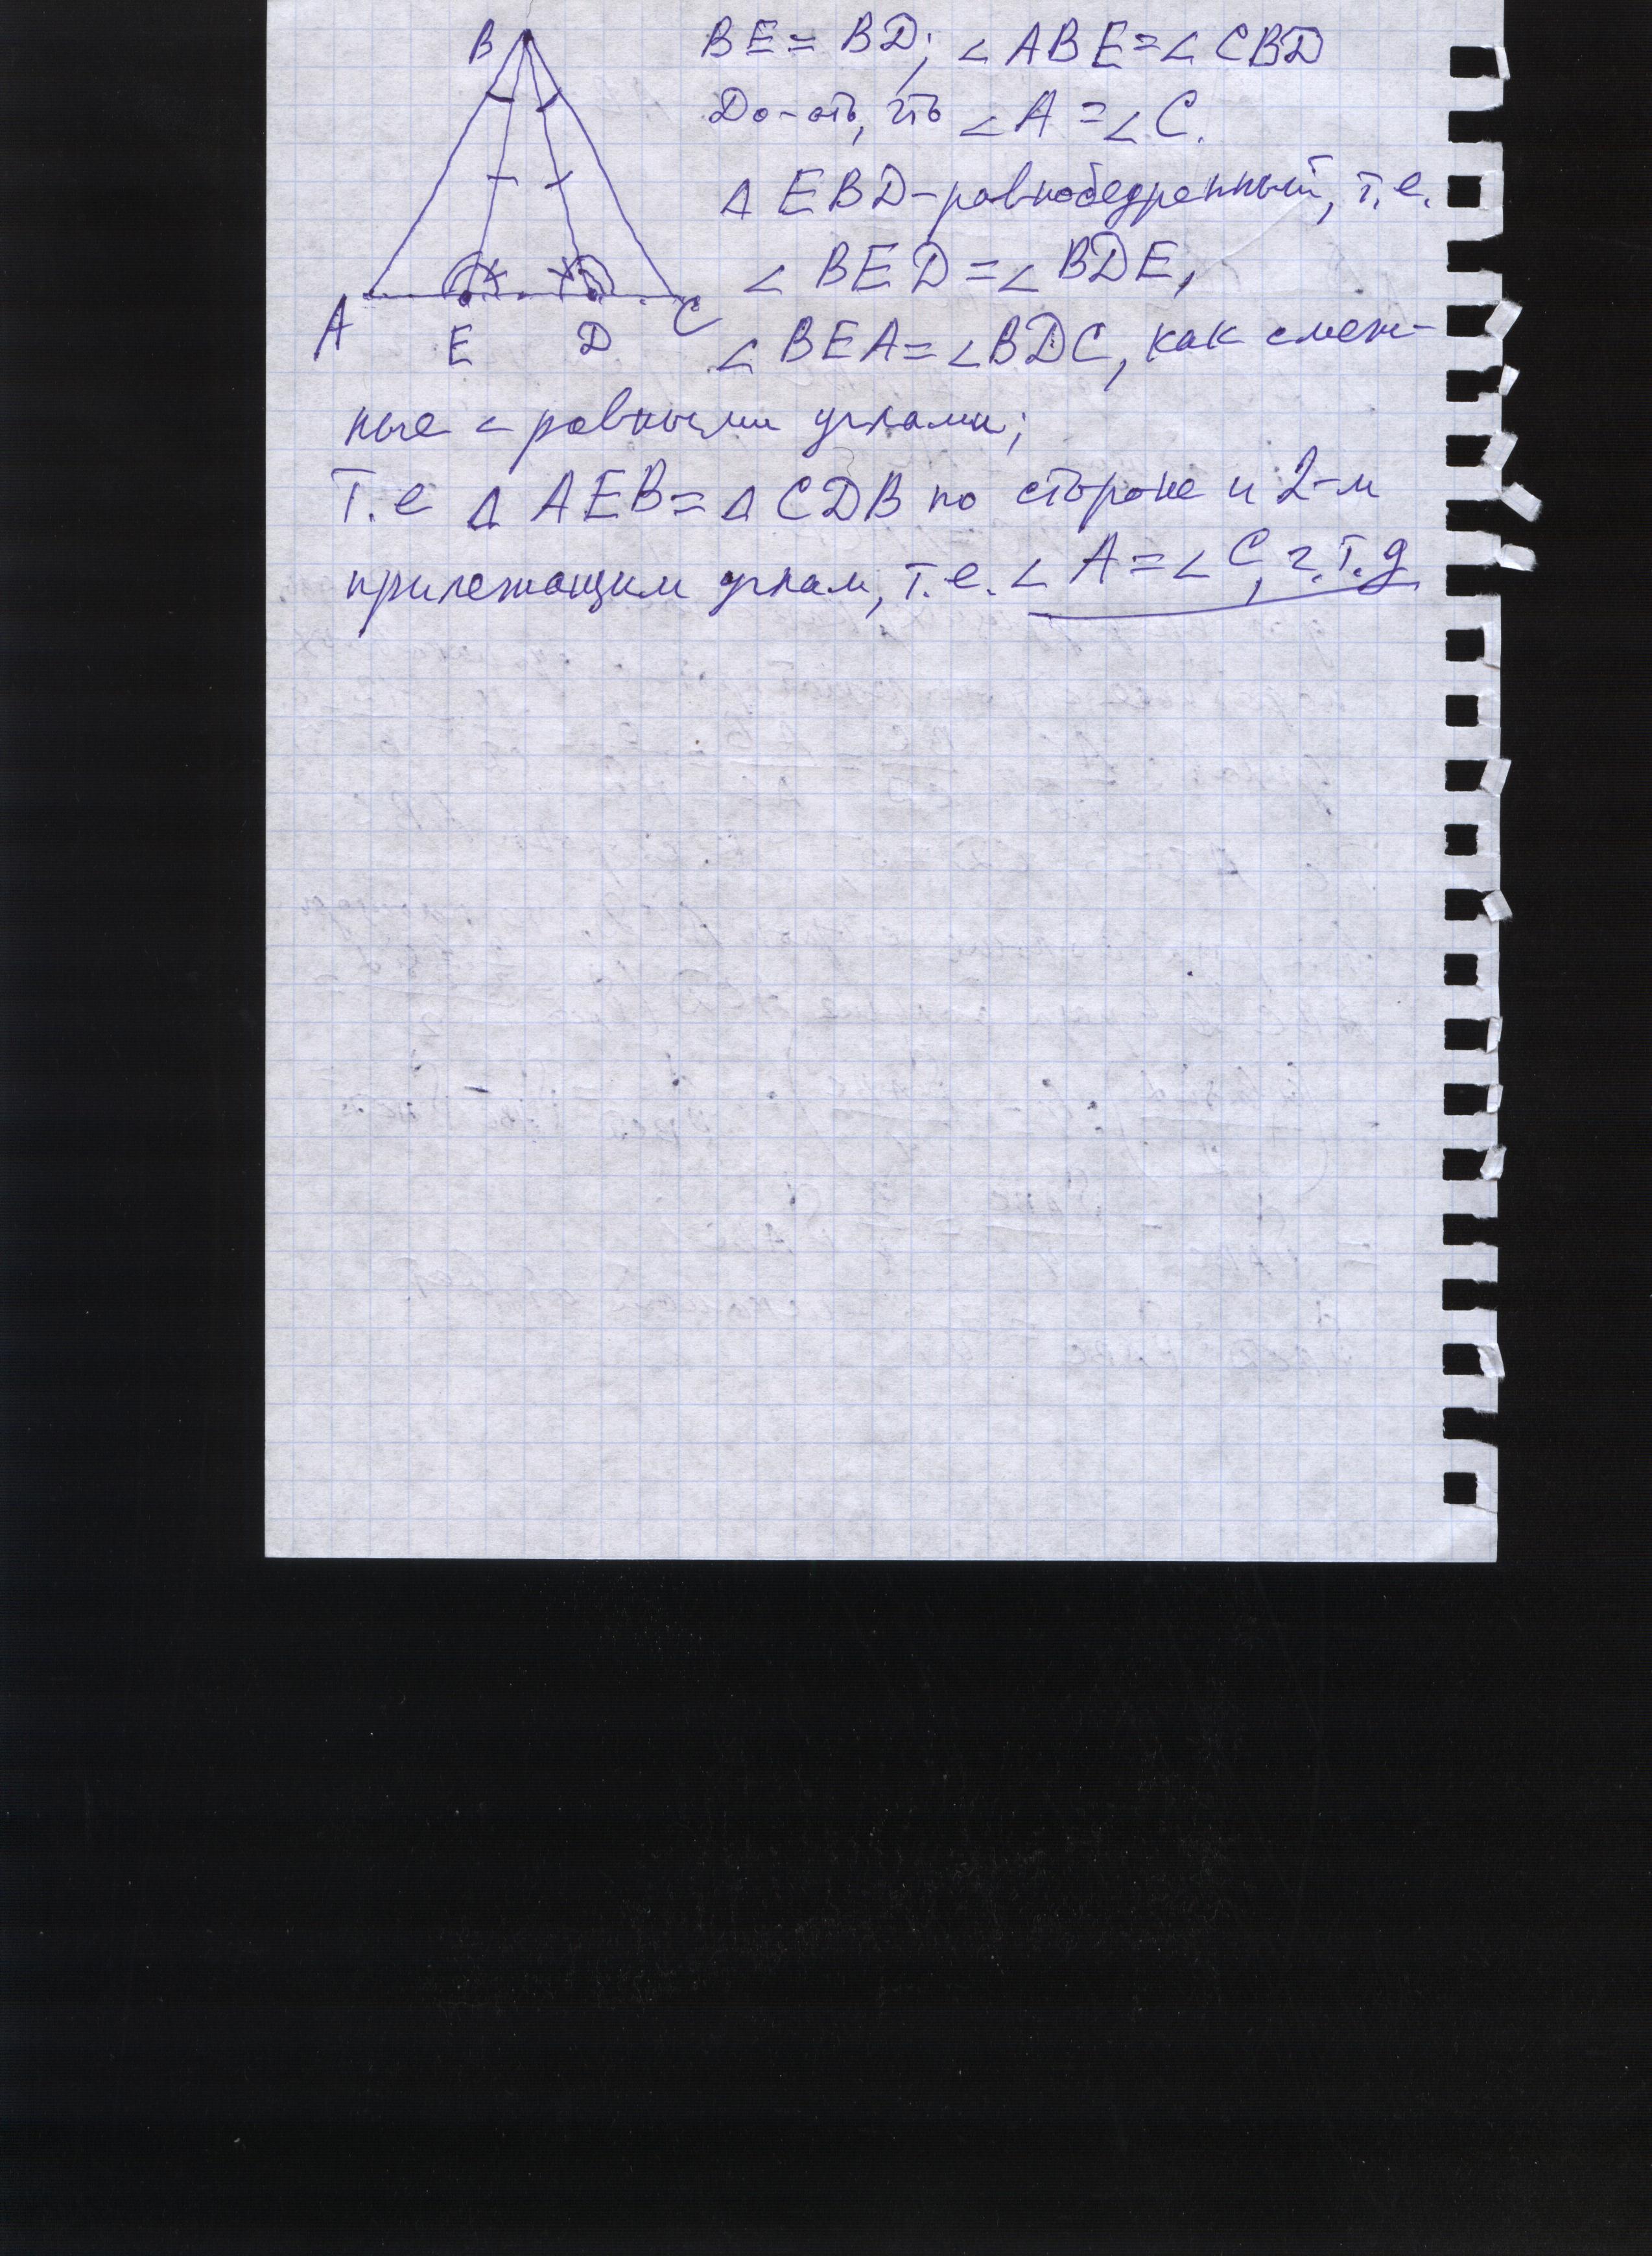 B
A
E
D
C
BE = BD; ∠ABE = ∠CBD
До-ать, что ∠A = ∠C.
Δ EBD - равнобедренный, т.е.
∠BED = ∠BDE,
∠BEA = ∠BDC, как смеж-
ные с равными углами;
Т.е Δ AEB = Δ CDB по стороне и 2-м
прилежащим углам, т.е. ∠A = ∠C, ч.т.д